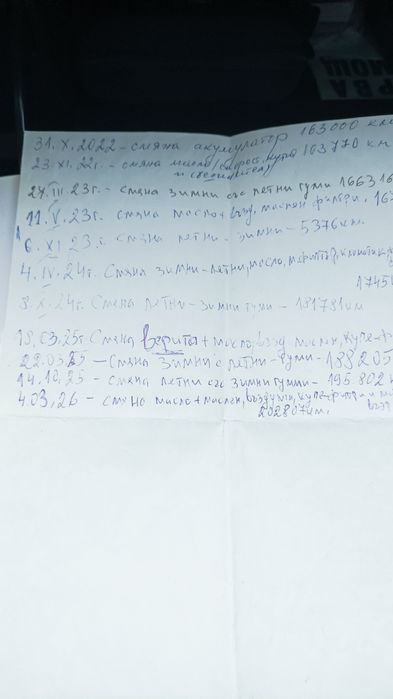 31.X.2022 - смяна акумулатор 163000 км
23.XI.22г. - смяна масло (скорос. кутия 163770 км
и съединител)
27.III.23г. - смяна зимни със летни гуми 16631
11.V.23г. смяна масло+възд, маслен филтри, 16
6.XI.23г. смяна летни - зимни - 5376км.
4.IV.24г. Смяна зимни-летни, масло, м.филтър,
1745
3.X.24г. Смяна летни-зимни гуми - 181781км
18.03.25г Смяна верига + масло, възд, маслен, купе
22.03.25 - Смяна зимни с летни - гуми - 188205
14.10.25 - смяна летни със зимни гумми - 195802
4.03.26 - смяна масло + маслен, въздушен, купе филтри и
202807км.
РВА
ПОЩ